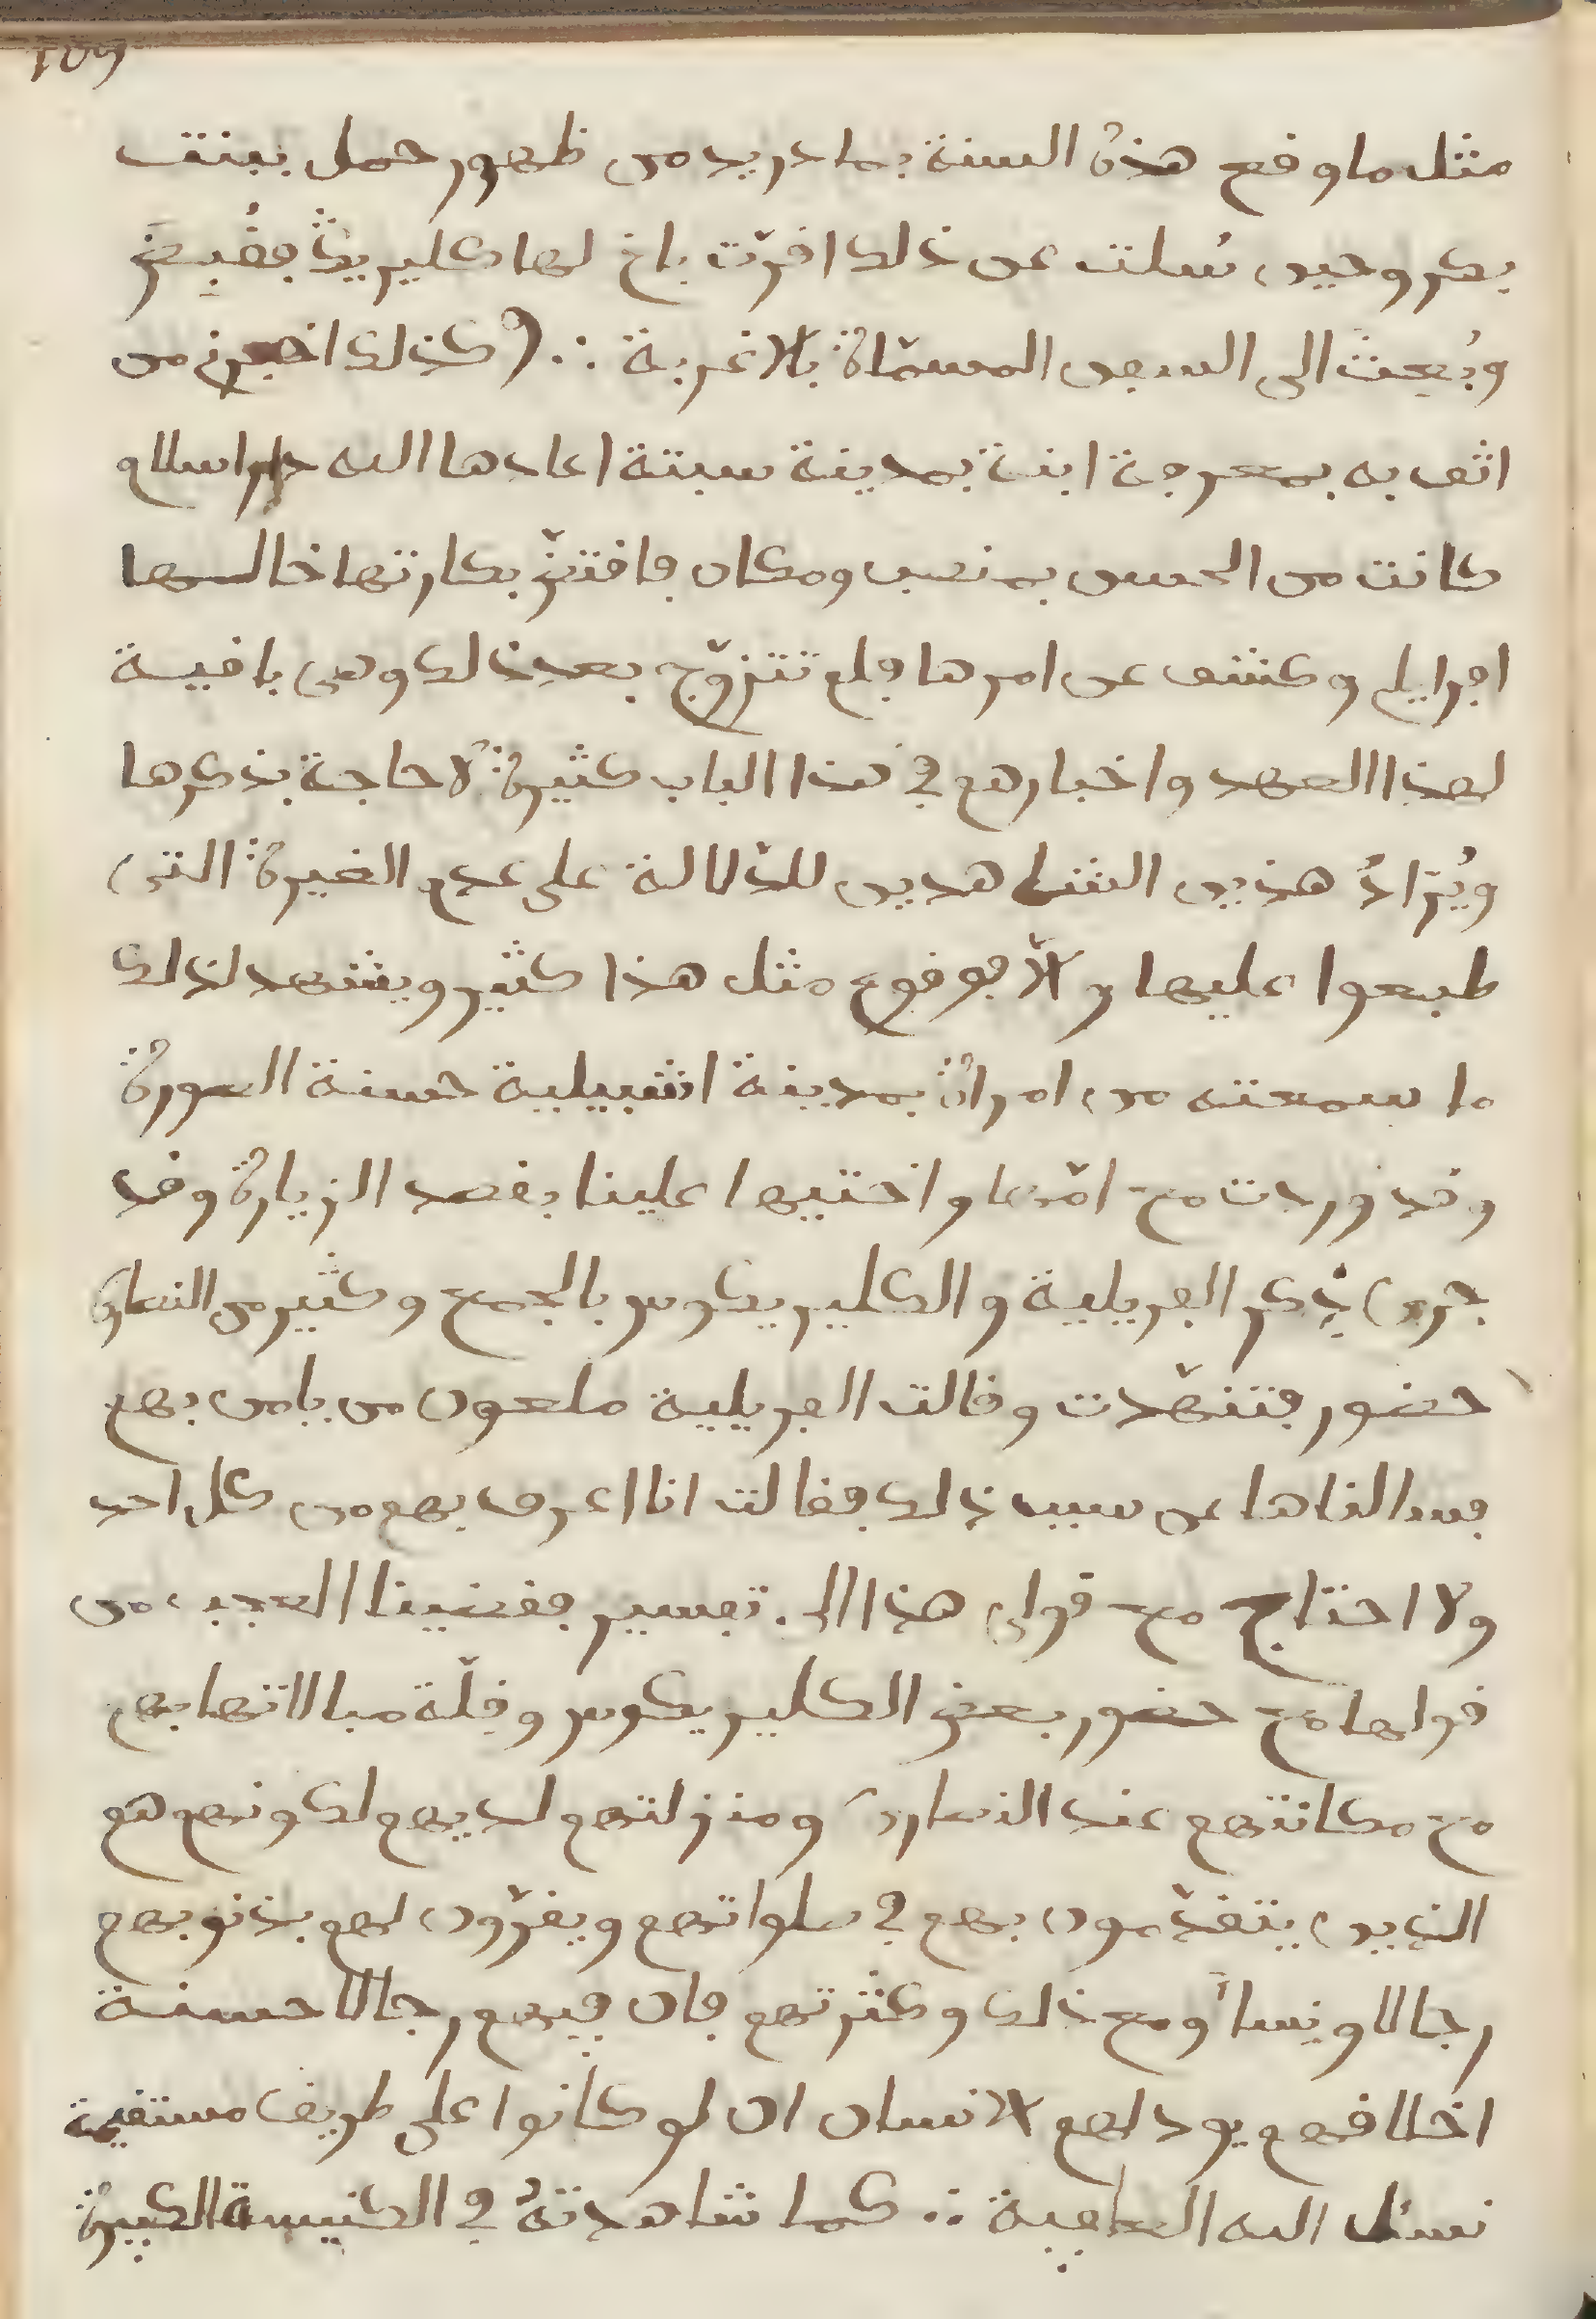 مثل ما وقع هذه السنة بمادريد من ظهور حمل ببنت
بكر وحين سُلت عن ذلك اقرّت باخ لها كليريكَ فقُبِضَ
وبُعثَ الى السجن المسمّاة بالاغربة ∴ وكذلك اخبرني من
اثق به بمعرفة ابنة بمدينة سبتة اعادها الله دار اسلام
كانت من الحسن بمنصب ومكان فافتضّ بكارتها خالها
افرايلي وكشف عن امرها فلم تتزوّج بعد ذلك وهي باقية
لهذا العهد واخبارهم في هذا الباب كثيرة لا حاجة بذكرها
ويُرادُ هذين الشاهدين للدّلالة على عدم الغيرة التي
طبعوا عليها والّا فوقوع مثل هذا كثير ويشهد لذلك
ما سمعته من امراة بمدينة اشبيلية حسنة الصورة
وقد وردت مع امّها واختيها علينا بقصد الزيارة وقد
جرى ذِكر الفريلية والكليريكوس بالجمع وكثير من النصارى
حضور فتنهّدت وقالت الفريلية ملعون من يامن بهم
فسالناها عن سبب ذلك فقالت انا اعرف بهم من كل احد
ولا احتاج مع قولي هذا الى تفسير فقضينا العجب من
قولها مع حضور بعض الكليريكوس وقلّة مبالاتها بهم
مع مكانتهم عند النصارى ومنزلتهم لديهم لكونهم هم
الذين يتقدّمون بهم في صلواتهم ويقرّون لهم بذنوبهم
رجالا ونِساً ومع ذلك وكثرتهم فان فيهم رجالا حسنة
اخلاقهم يود لهم الانسان ان لو كانوا على طريق مستقيمة
نسئل الله العافية ∴ كما شاهدتهُ في الكنيسة الكبيرة